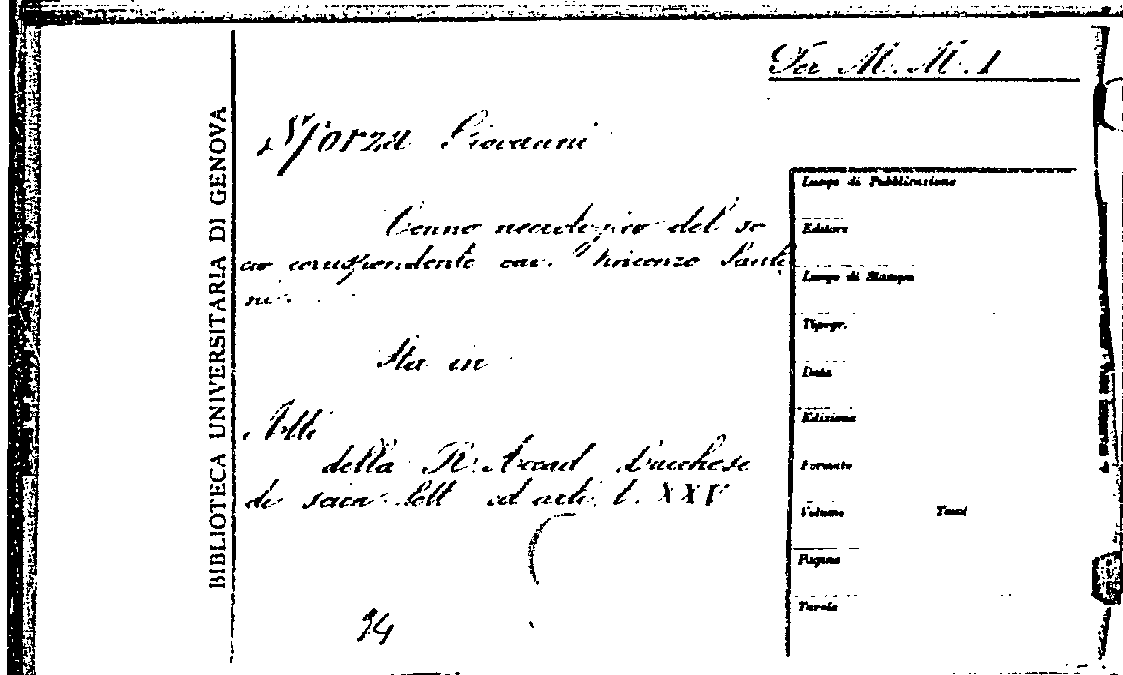 Ser M. M. 1
Sforza Giovanni
Cenno necrologico del so
cio corrispondente cav. Vincenzo Santi
ni.
Sta in
Atti
della R. Accad. Lucchese
di scien. lett. ed arti, t. XXV
94
BIBLIOTECA UNIVERSITARIA DI GENOVA
Luogo di Pubblicazione
Editore
Luogo di Stampa
Tipogr.
Data
Edizione
Formato
Volume Tomi
Pagine
Tavole